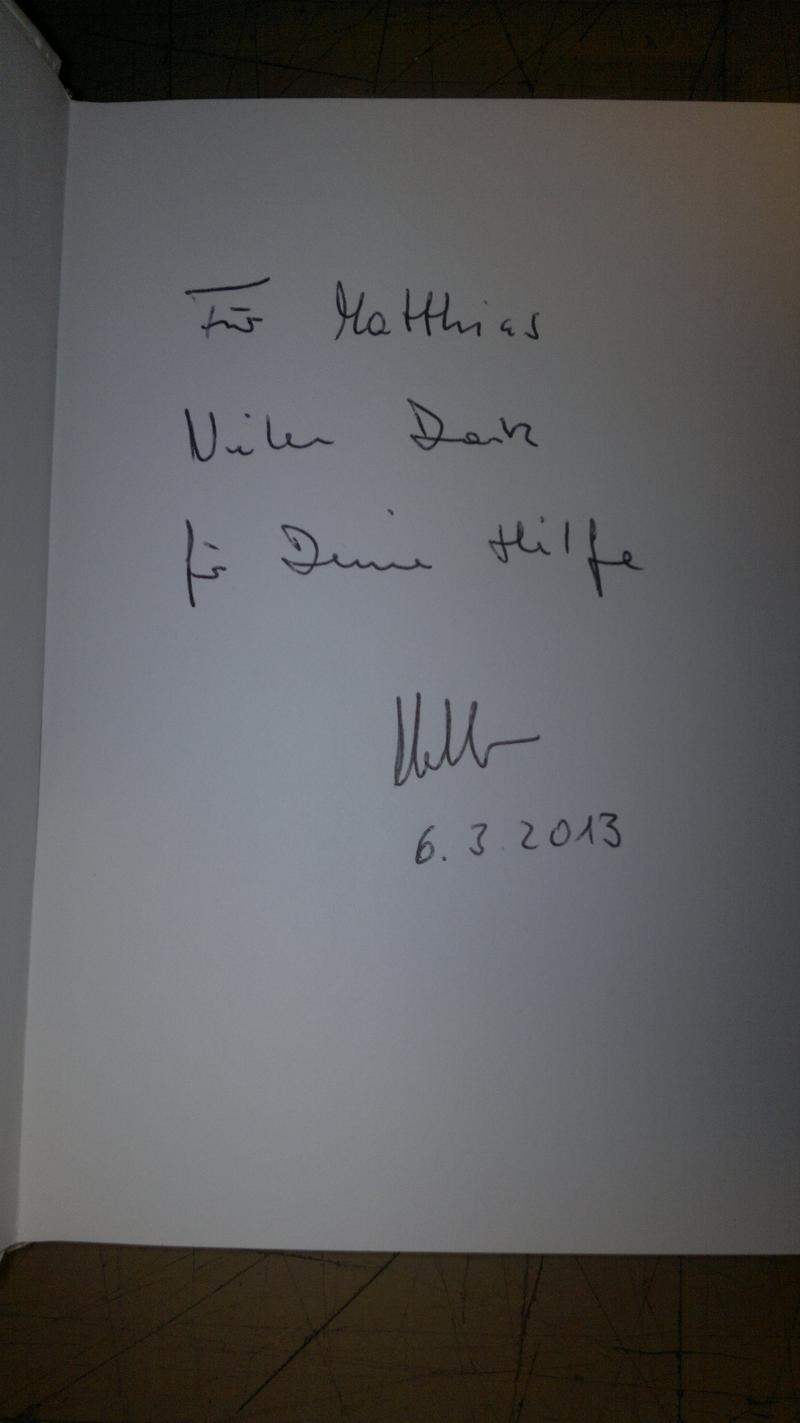 Für Matthias
Vielen Dank
für Deine Hilfe
6.3.2013